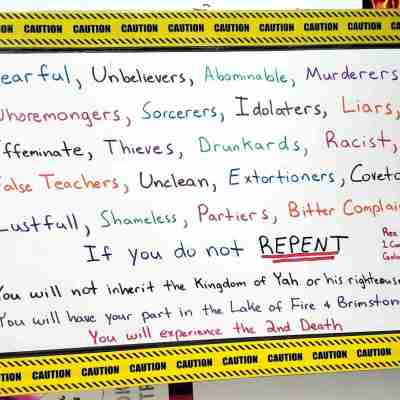 ON CAUTION CAUTION CAUTION CAUTION CAUTION CAUTION CAUTION CAUTION CAUTION
earful, Unbelievers, Abominable, Murderers
horemongers, Sorcerers, Idolaters, Liars,
ffeminate, Thieves, Drunkards, Racist,
alse Teachers, Unclean, Extortioners, Coveto
Lustfull, Shameless, Partiers, Bitter Complai
If you do not REPENT
You will not inherit the Kingdom of Yah or his righteous
You will have your part in the Lake of Fire & Brimston
You will experience the 2nd Death
TION CAUTION CAUTION CAUTION CAUTION CAUTION CAUTION CAUTION CAUTION